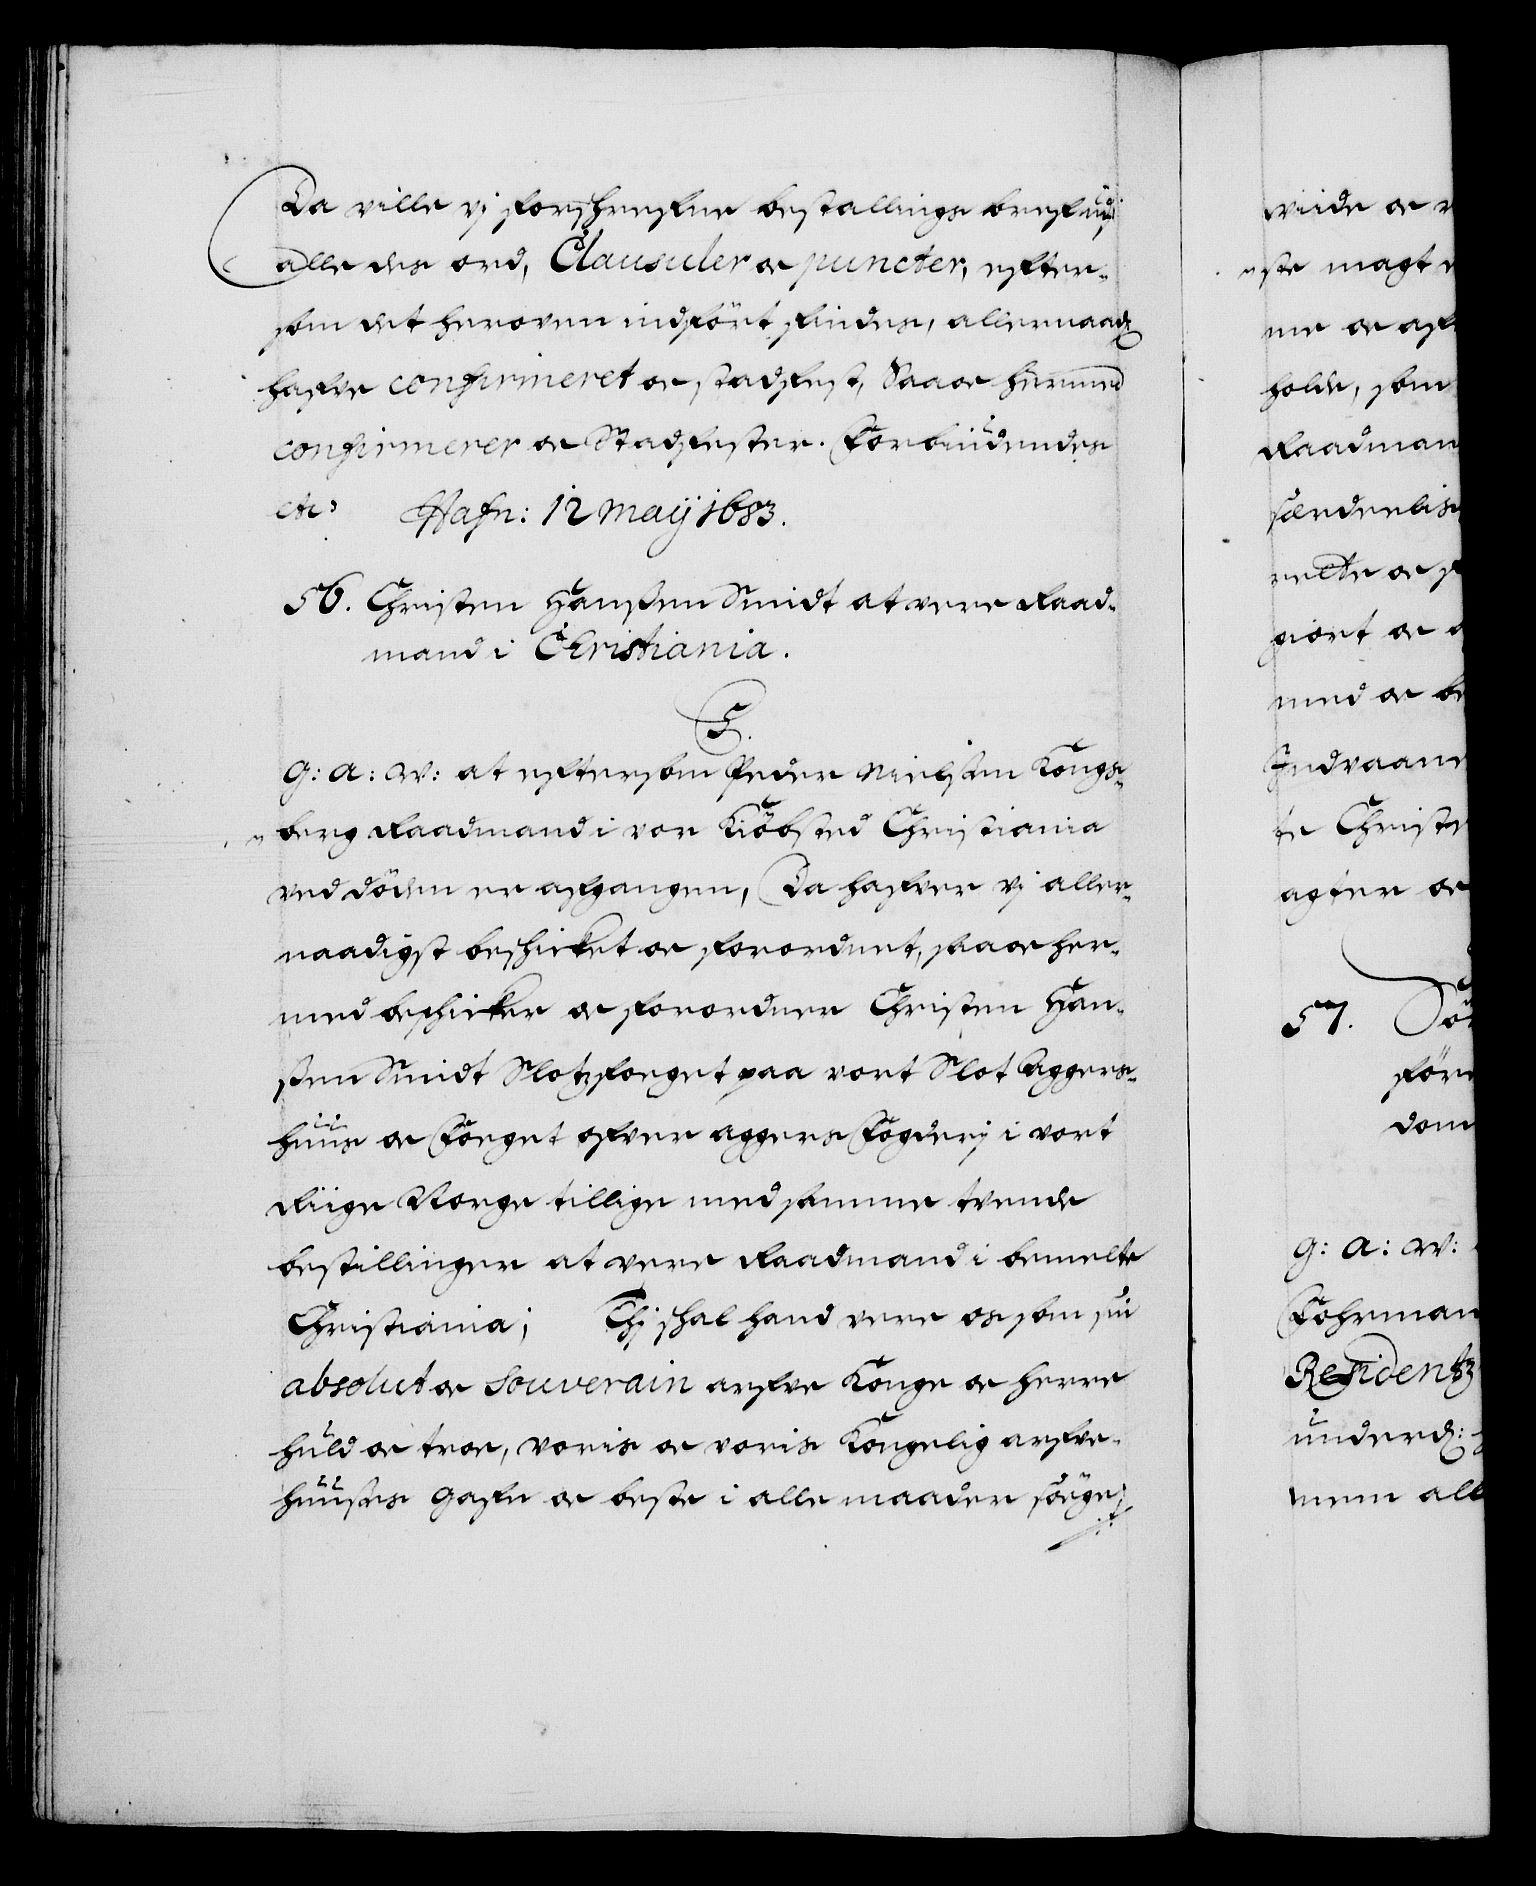 Da ville vj forschrefne bestallings bref udj
alle des ord, Clausuler oc puncter, efter-
som det heroven indfört findes, allernaad:
hafve confirmeret oc stadfest, Saa oc hermed
confirmerer oc Stadfester. Forbiudendes
etc: Hafn: 12 Maij 1683.
56. Christen Hanssen Smidt at vere Raad-
mand i Christiania.
C5.
G: A: W: at eftersom Peder Nielssen Kongs-
berg Raadmand i vor Kiöbsted Christiania
ved döden er afgangen, Da hafver vj aller-
naadigst beschicket oc forordnet, saa oc her-
med beschicker oc forordner Christen Han-
ssen Smidt Slotzfoeget paa vort Slot Aggers-
huus oc Foeget ofver Aggers Fogderj i vort
Riige Norge tillige med samme tvende
bestillinger at vere Raadmand i bemelte
Christiania; Thj schal hand vere os som sin
absolut oc Souverain arfve Konge oc Herre
huld oc troe, voris oc voris Kongelig arfve-
huuses gafn oc beste i alle maader söege,
viide oc
ste magt
me oc af
holde, som
Raadman
særdeelis
rette oc
giort oc
med oc be
Indvaane
te Christe
agter oc
57. Sö
före
dom
G: A: W:
Fohrman
Residentz
underd:
mem all